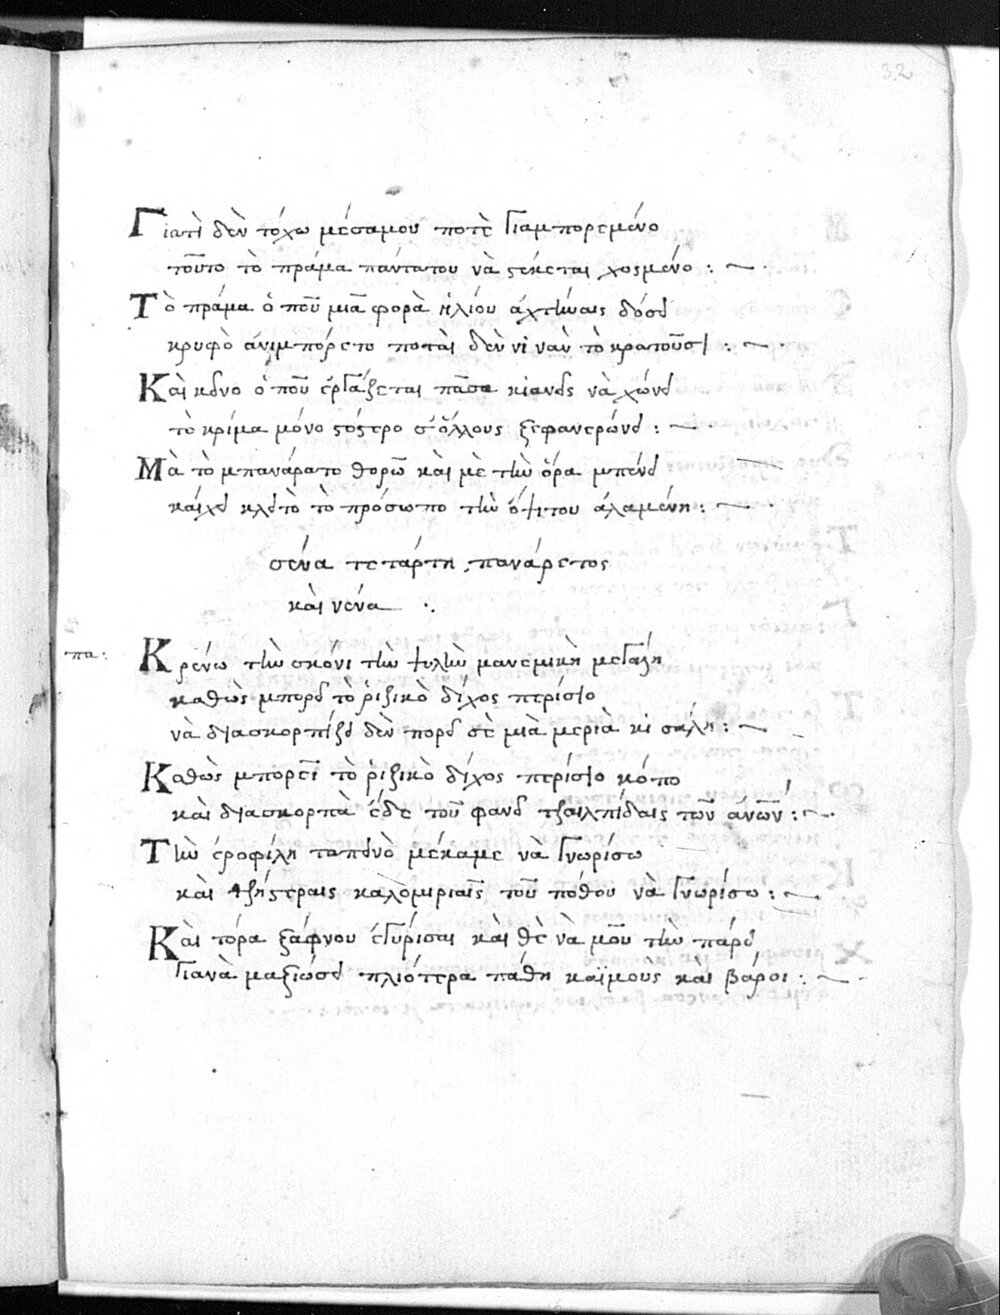 32
Γιατὶ δὲν τόχω μέσαμου ποτὲ γιαμπορεμένο
τοῦτο τὸ πράμα πάντατου νὰ στέκεται χοσμένο :
Τὸ πράμα ὁ ποῦ μιὰ φορὰ ἡλίου ἀχτίναις δόσει
κρυφὸ ἀνιμπόρετο ποταὶ δὲν νὶ νὰν τὸ κρατοῦσι :
Καὶ κεῖνο ὁ ποῦ ἐργάζεται πᾶσα κιανεὶς νὰ χώνει
τὸ κρίμα μόνο στόστερο σ' ὅλλους ξεφανερώνει :
Μὰ τὸ μπανάρατο θορῶ καὶ μὲ τὴν ὅρα μπένει
κάιχει κλειτὸ τὸ πρόσωπο τὴν ὄψιτου ἀλαμένη :
σένα τετάρτη πανάρετος
καὶ νένα
πα:
Κρένω τὴν σκόνι τὴν ψυλὴν μανεμικὴ μεγάλη
καθὼς μπορεῖ τὸ ῥιζικὸ δίχος περίσιο
νὰ διασκορπίζει δὲν πορεῖ σὲ μιὰ μεριὰ κὶ σκάλη :
Καθὼς μπορεῖ τὸ ῥιζικὸ δίχος περίσιο κόπο
καὶ διασκορπὰ ἐδὲ τοῦ φανεῖ τζαιλπίδαις τῶν ἀνῶν :
Τὴν ἐροφίλη ταπεινὸ μέκαμε νὰ γνωρίσω
καὶ ἀξήστεραις καλομιριαῖς τοῦ πόθου νὰ γνωρίσω :
Καὶ τόρα ξάφνου ἐγύρισαι καὶ θὲ νὰ μοῦ τὴν πάρει
γιανὰ μαξιώσει πλιότερα πάθη καϊμοὺς καὶ βάροι :